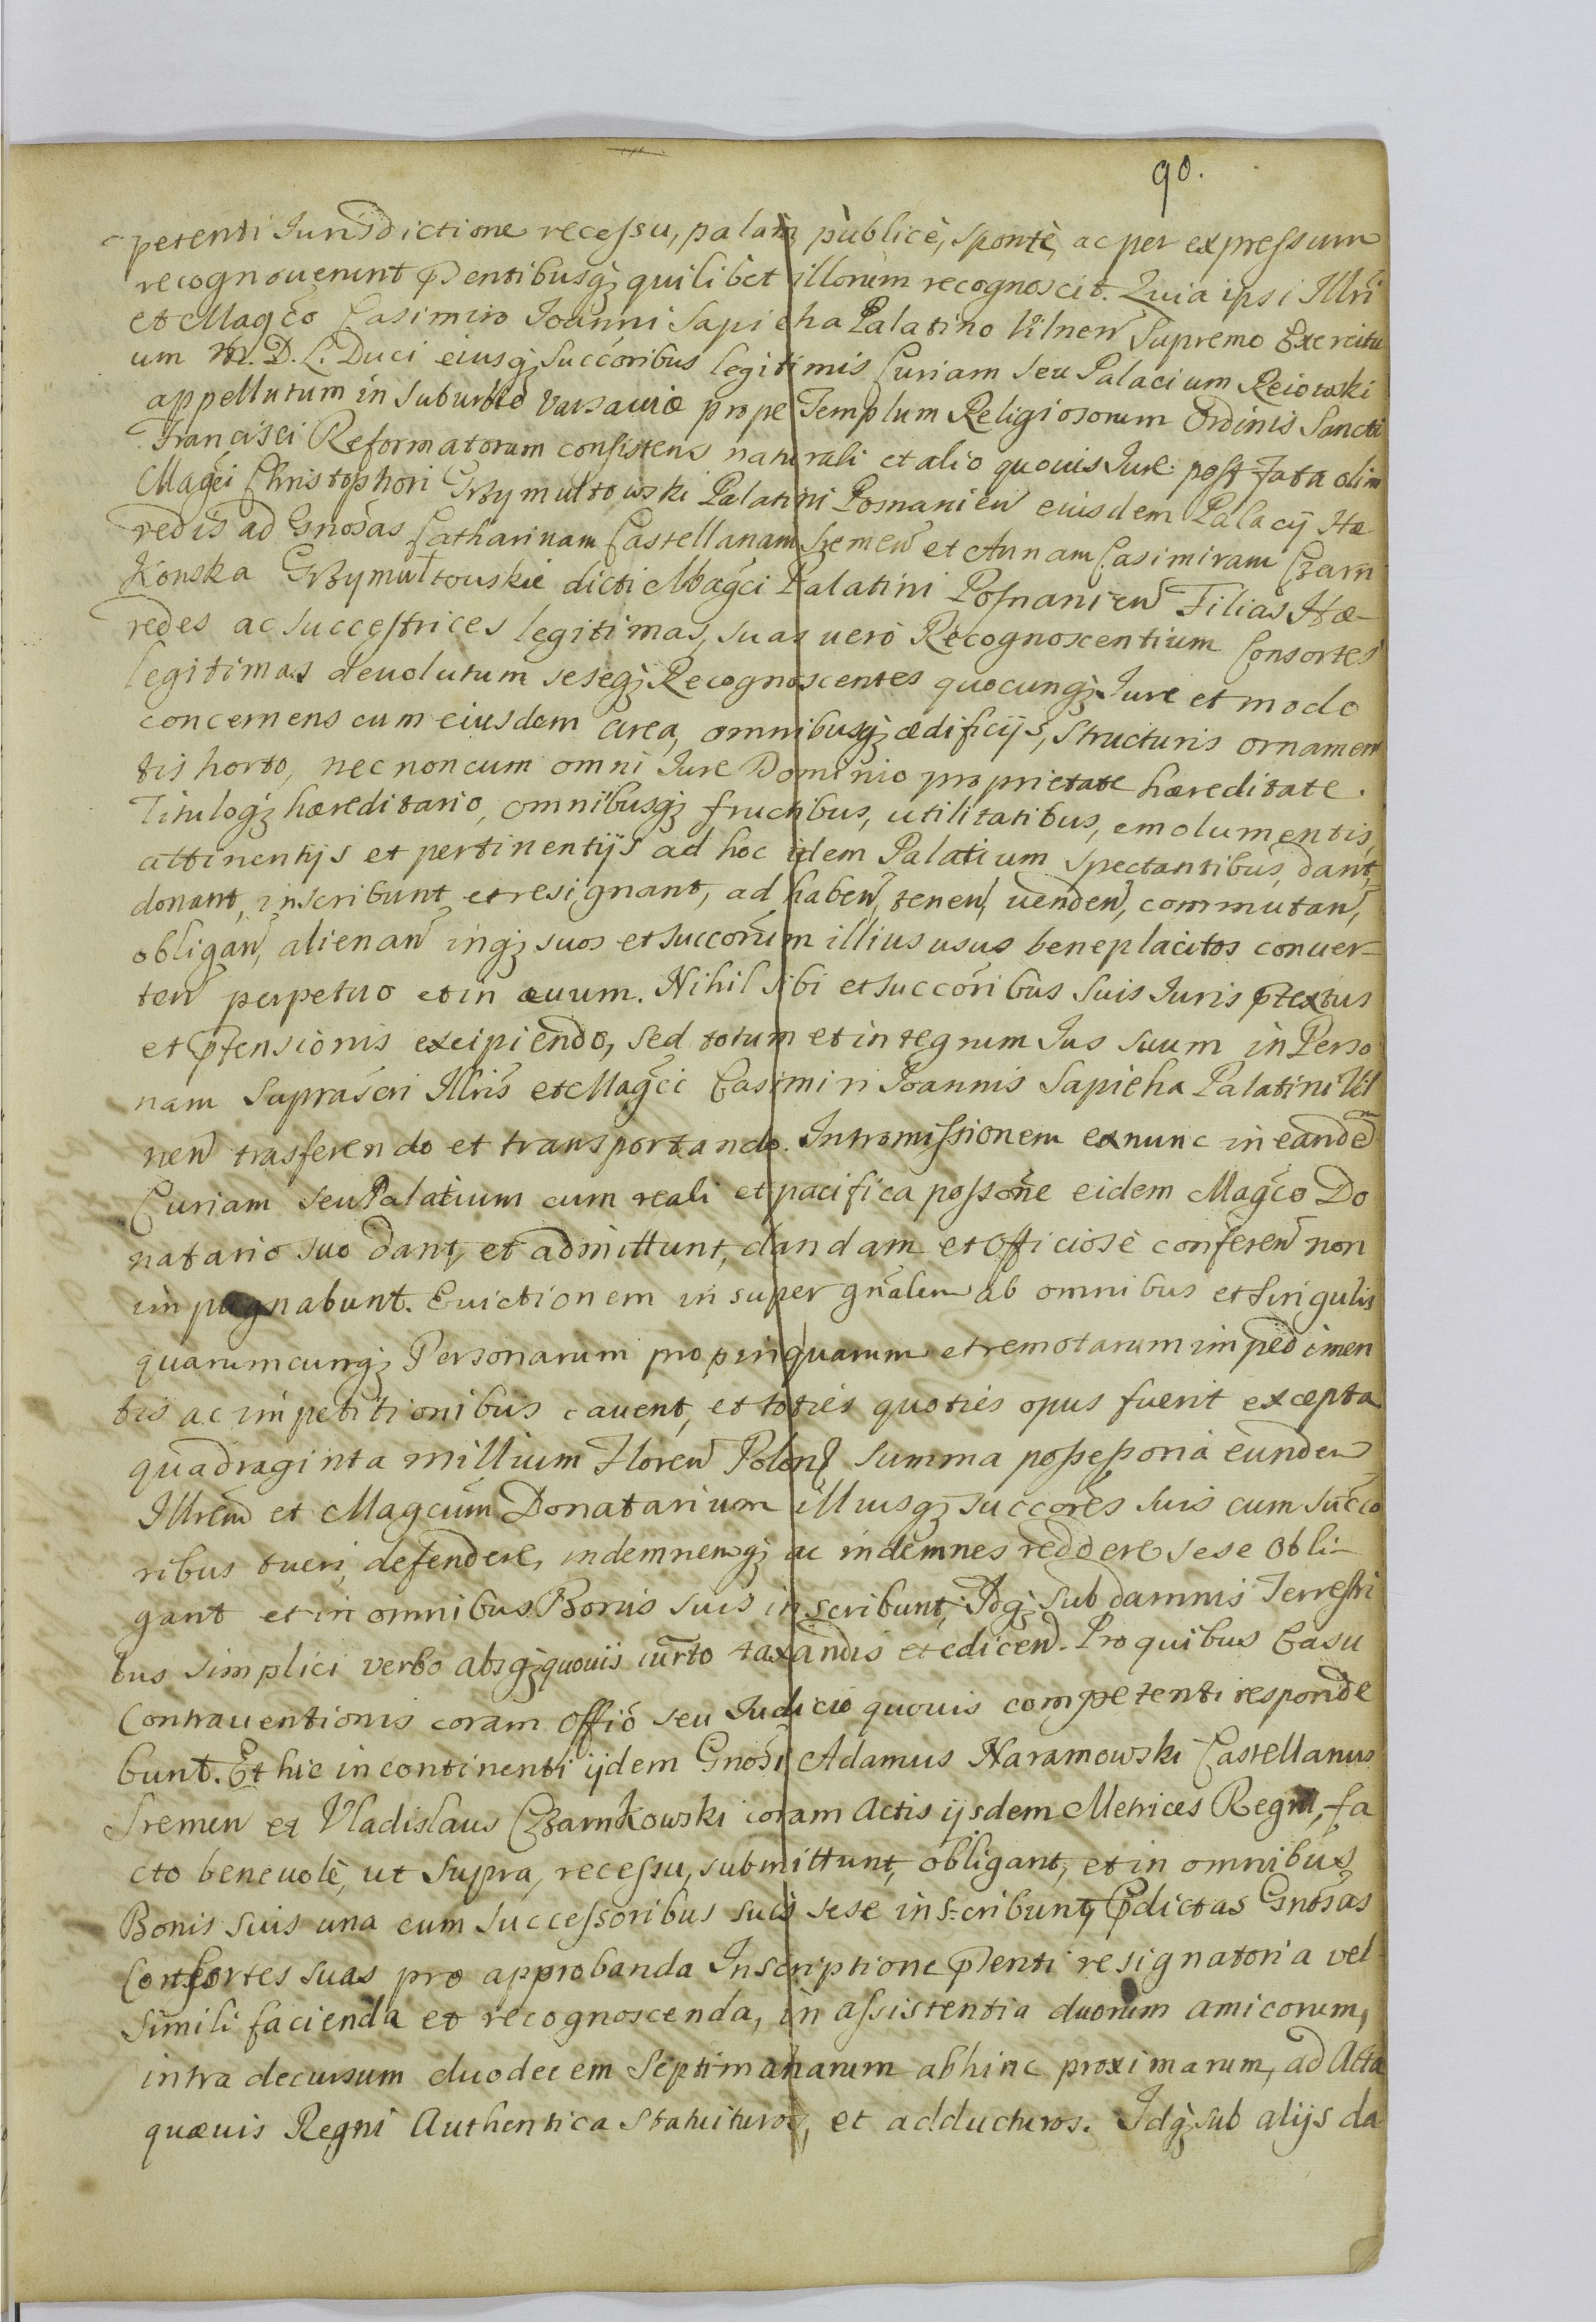 90.
petenti Jurisdictione recessu, palam publicè, spontè, ac per expressum
recognoverunt p̄sentibusq; quilibet illorum recognoscit. Quia ipsi Illri
et Magco Casimiro Joanni Sapieha Palatino Vilnen̄ Supremo Exercitu
um M. D. L. Duci eiusq; succoribus legitimis Curiam seu Palacium Reiowski
appellutum in suburbio Varsaviæ prope Templum Religiosorum Ordinis Sancti
Francisci Reformatorum consistens naturali et alio quouis Jure post fata olim
Magci Christophori Grzymultowski Palatini Posnanien̄ eiusdem Palacij Hæ
redis ad Gnosas Catharinam Castellanam Sremen̄ et Annam Casimiram Czarn
Konska Grzymultouskie dicti Magci Palatini Posnanien̄ Filias Hæ-
redes ac successtrices legitimas, suas uerò Recognoscentium Consortes
legitimas deuolutum seseq; Recognoscentes quocunq; Jure et modo
concernens cum eiusdem area, omnibusq; ædificijs, structuris ornamen
tis horto, nec non cum omni Jure Dominio proprietate hæreditate.
Tituloq; hæreditario, omnibusq; fructibus, utilitatibus, emolumentis,
attinentijs et pertinentijs ad hoc idem Palatium spectantibus, dant,
donant, inscribunt et resignant, ad haben̄, tenen̄, uenden̄, commutan̄,
obligan̄, alienan̄ inq; suos et succorum illius usus beneplacitos conuer-
ten̄ perpetuo et in æuum. Nihil sibi et succoribus suis Juris p̄textus
et p̄tensionis excipiendo, sed totum et integrum Jus suum in Perso
nam suprascri Illris et Magci Casimiri Joannis Sapieha Palatini Vil
nen̄ trasferendo et transportando. Intromissionem ex nunc in eandē
Curiam seu Palatium cum reali et pacifica possōne eidem Magco Do
natario suo dant, et admittunt, dandam et Officiosè conferen̄ non
impugnabunt. Euictionem insuper gn̄alem ab omnibus et singulis
quarumcunq; Personarum propinquarum et remotarum impedimen
tis ac impetitionibus cauent, et toties quoties opus fuerit excepta
quadraginta millium Floren̄ Polon̄ summa possessoria eunden
Illrem et Magcum Donatarium illiusq; succores suis cum succo
ribus tueri, defendere, indemnemq; ac indemnes reddere sese obli-
gant et in omnibus Bonis suis inscribunt, Idq; sub damnis Terrestri
bus simplici verbo absq; quouis iurto taxandis et edicen̄. Pro quibus Casu
Contrauentionis coram Offio seu Judicio quouis competenti responde
bunt. Et hic in continenti ijdem Gnosi Adamus Naramowski Castellanus
Sremen̄ et Vladislaus Czarnkowski coram Actis ijsdem Metrices Regni, fa
cto beneuolè, ut supra, recessu, submittunt, obligant, et in omnibus
Bonis suis una cum successoribus suis sese inscribunt, P̄dictas Gnosas
Consortes suas pro approbanda Inscriptione p̄senti resignatoria vel
simili facienda et recognoscenda, in assistentia duorum amicorum,
intra decursum duodecem septimanarum abhinc proximarum, ad Acta
quæuis Regni Authentica statuituros, et adducturos. Idq; sub alijs da